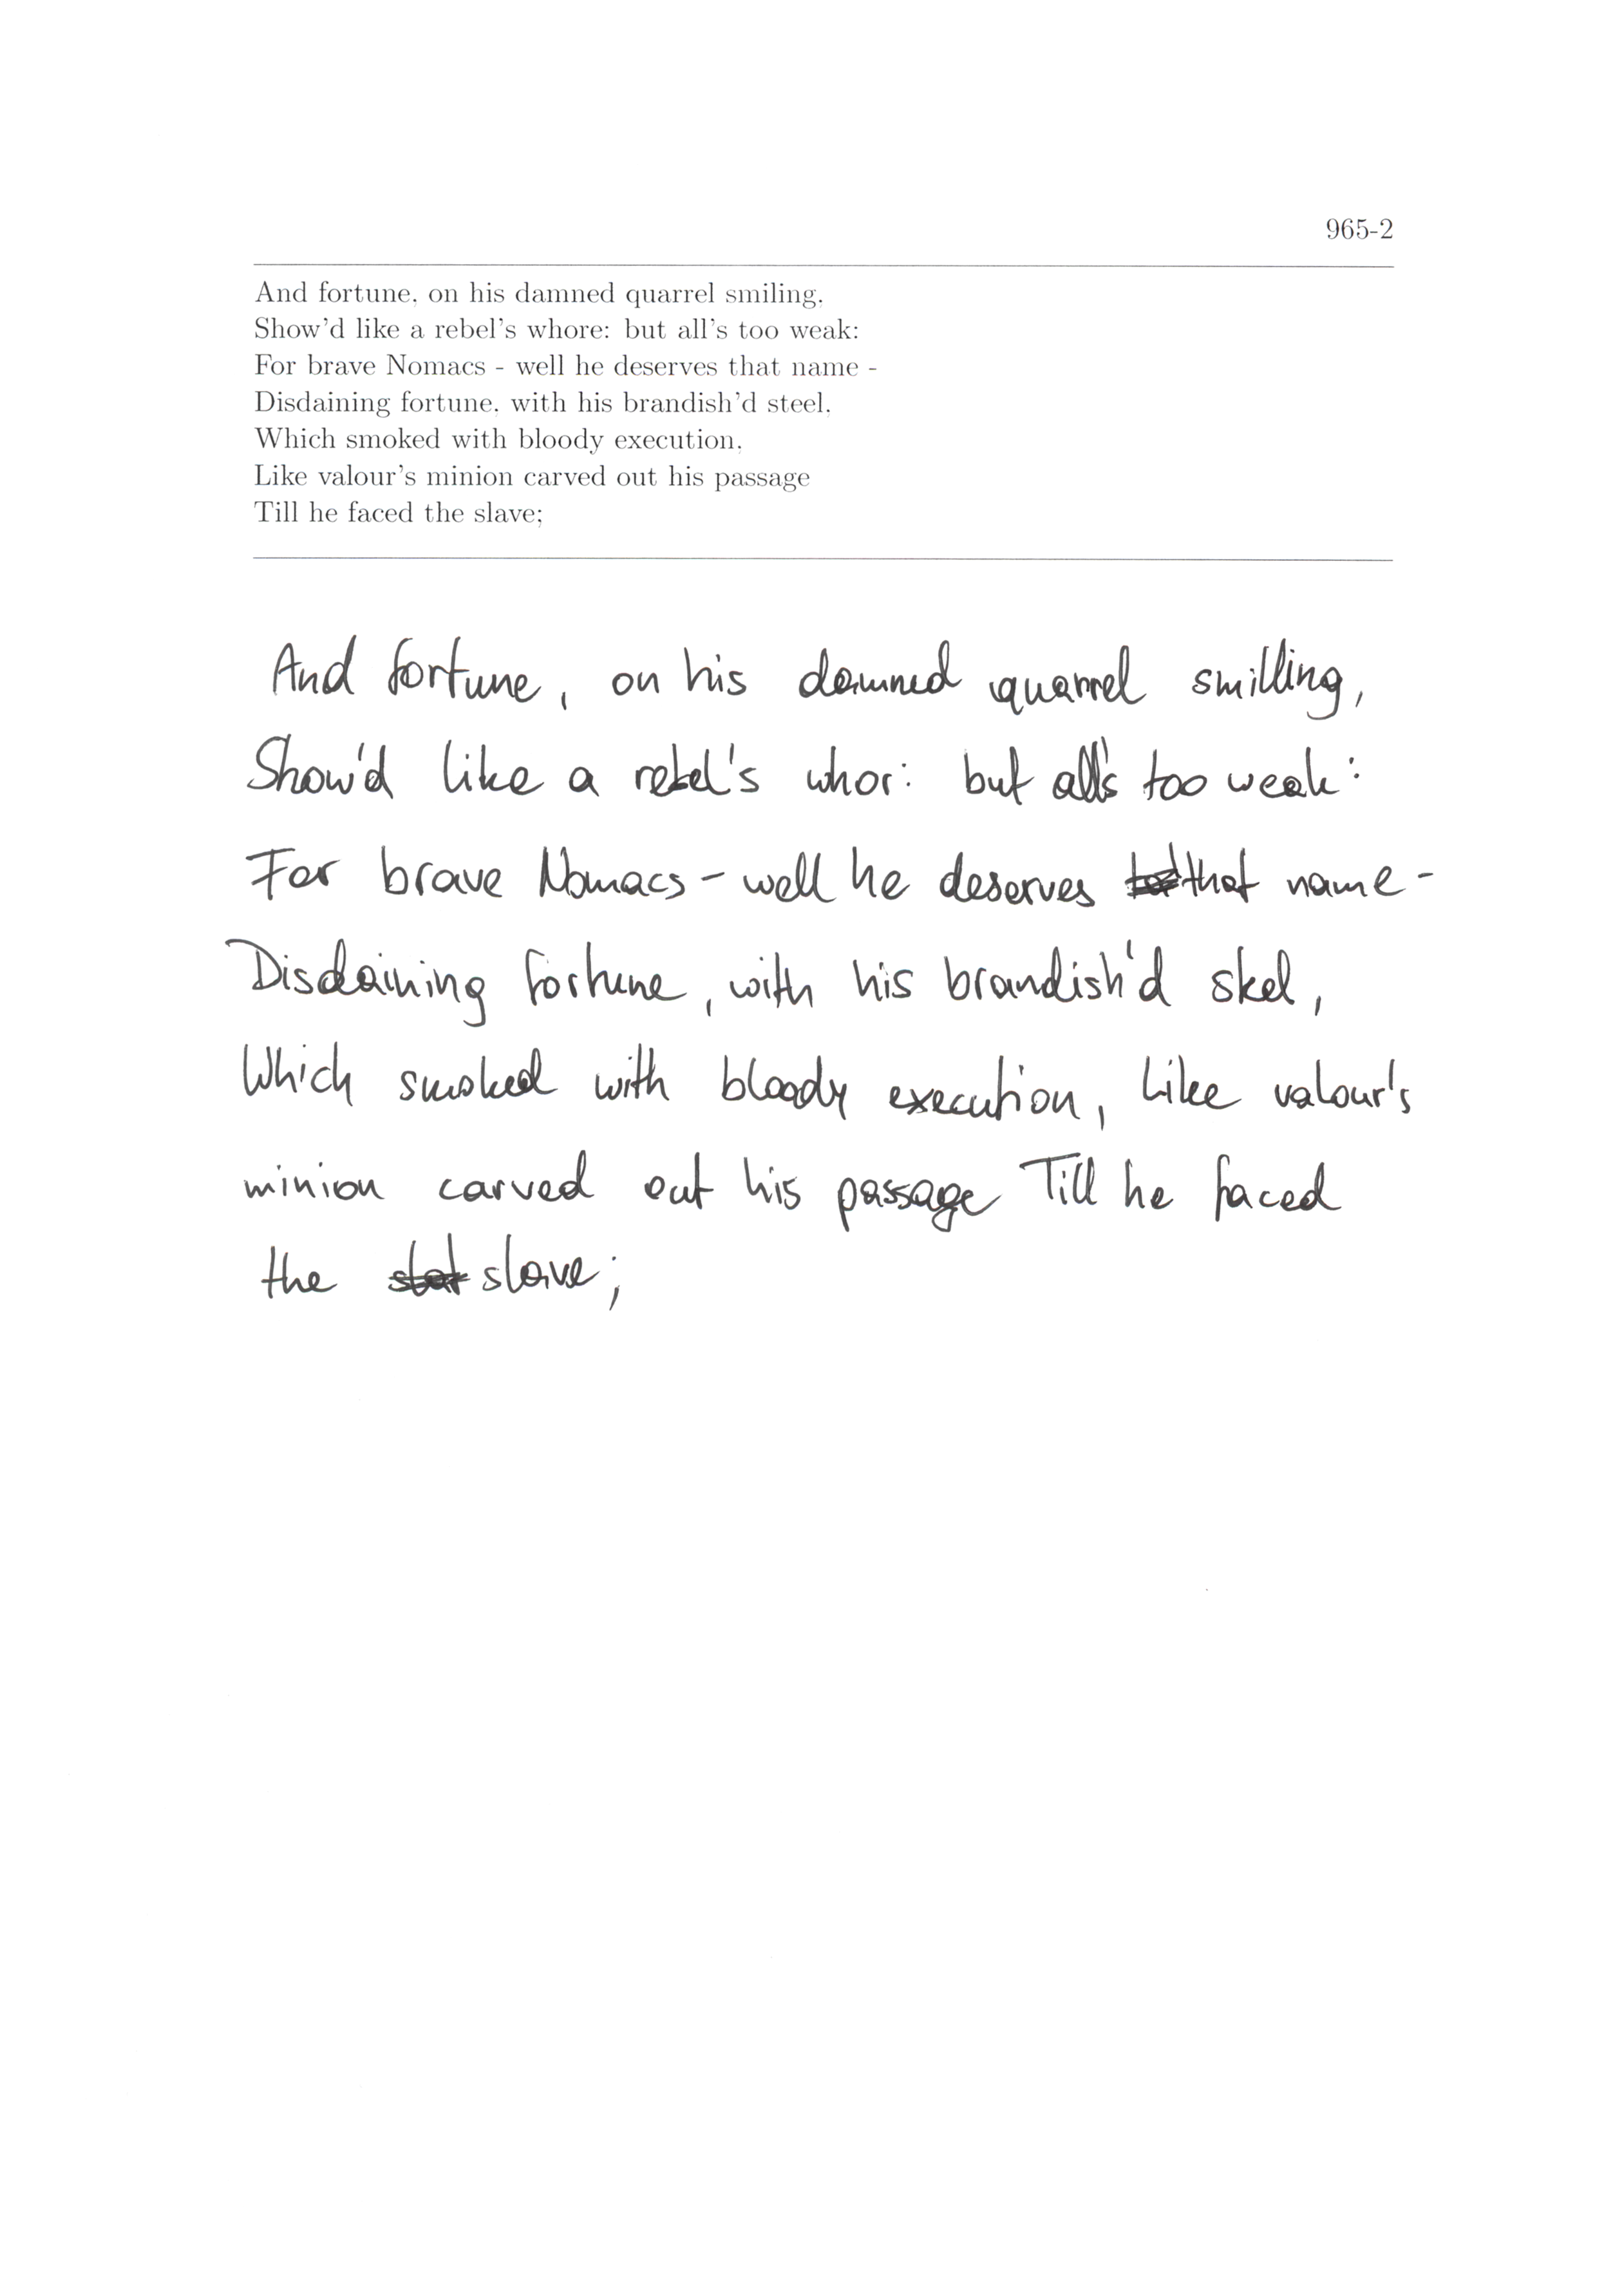 965-2
And fortune, on his damned quarrel smiling,
Show'd like a rebel's whore: but all's too weak:
For brave Nomacs - well he deserves that name -
Disdaining fortune, with his brandish'd steel,
Which smoked with bloody execution,
Like valour's minion carved out his passage
Till he faced the slave;
And fortune, on his damned quarrel smilling,
Show'd like a rebel's whor: but all's too weak:
For brave Nomacs - well he deserves that name -
Disdaining fortune, with his brandish'd steel,
Which smoked with bloody execution, Like valour's
minion carved out his passage Till he faced
the slave;